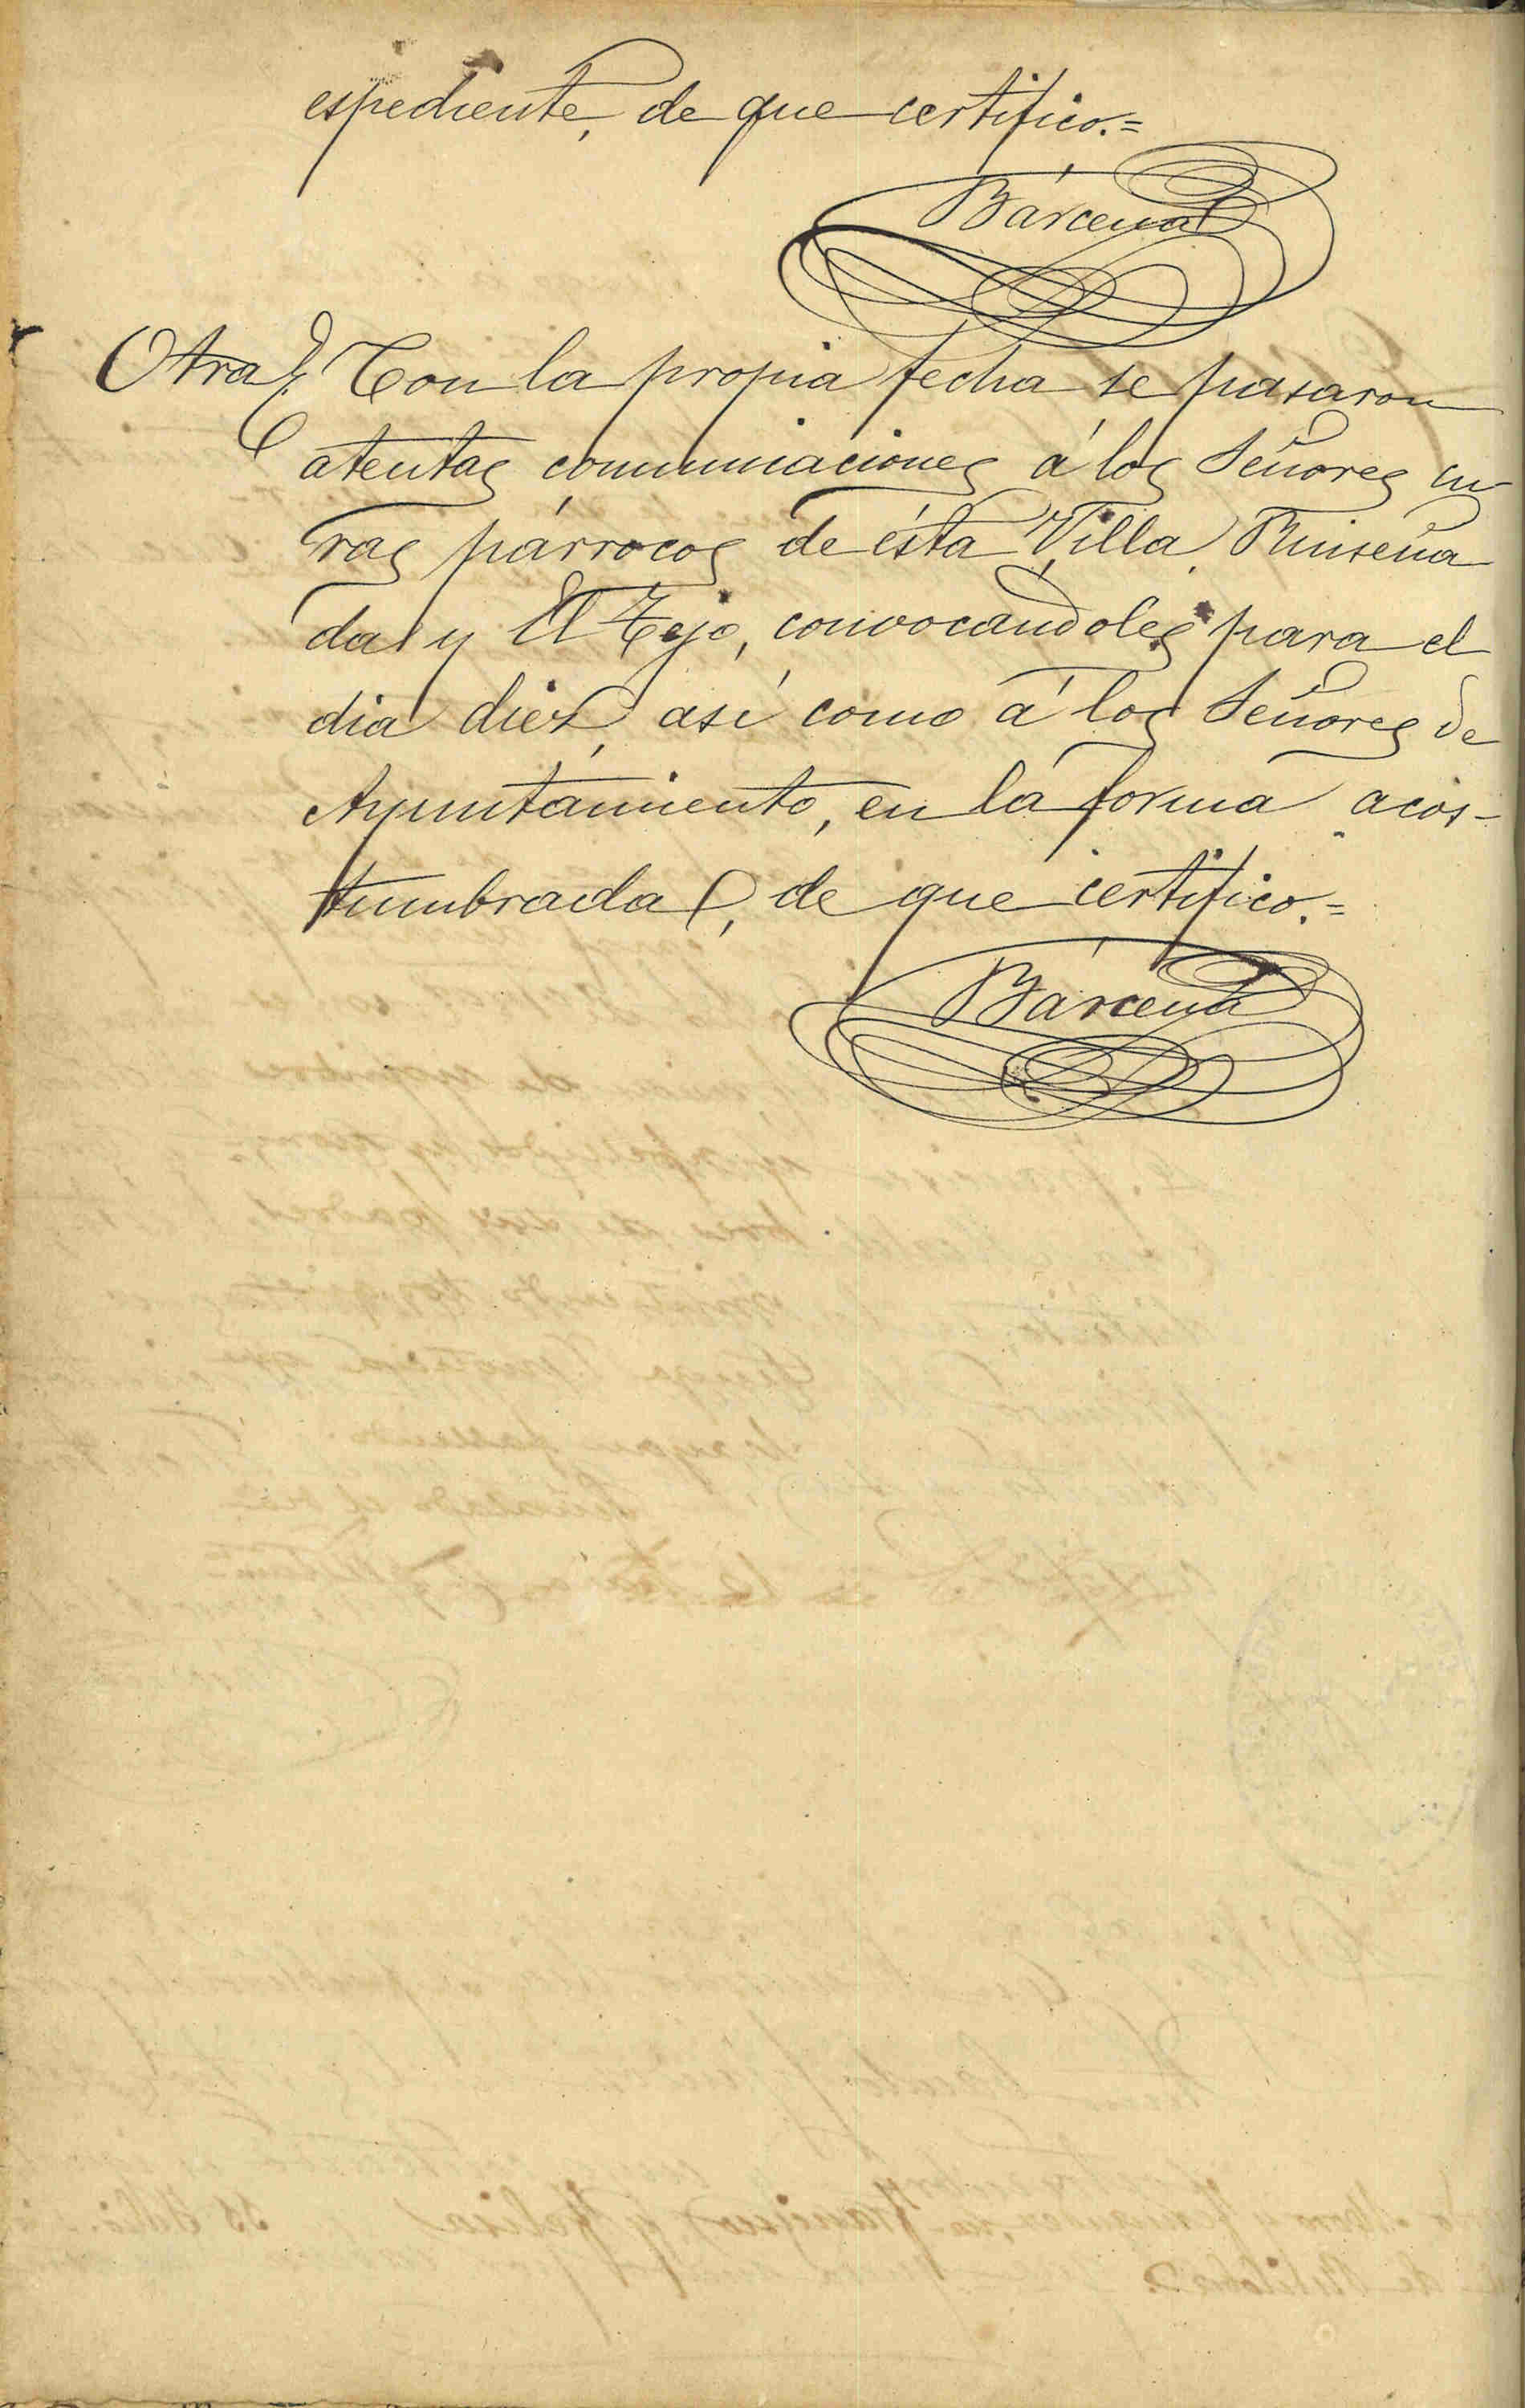 espediente, de que certifico.=
Bárcena
Otra} Con la propia fecha se pasaron
atentas comunicaciones á los Señores cu-
ras párrocos de ésta Villa, Ruiseña-
da y El Tejo, convocandoles para el
dia diez, asi como á los Señores de
Ayuntamiento, en la forma acos-
tumbrada, de que certifico.=
Bárcena